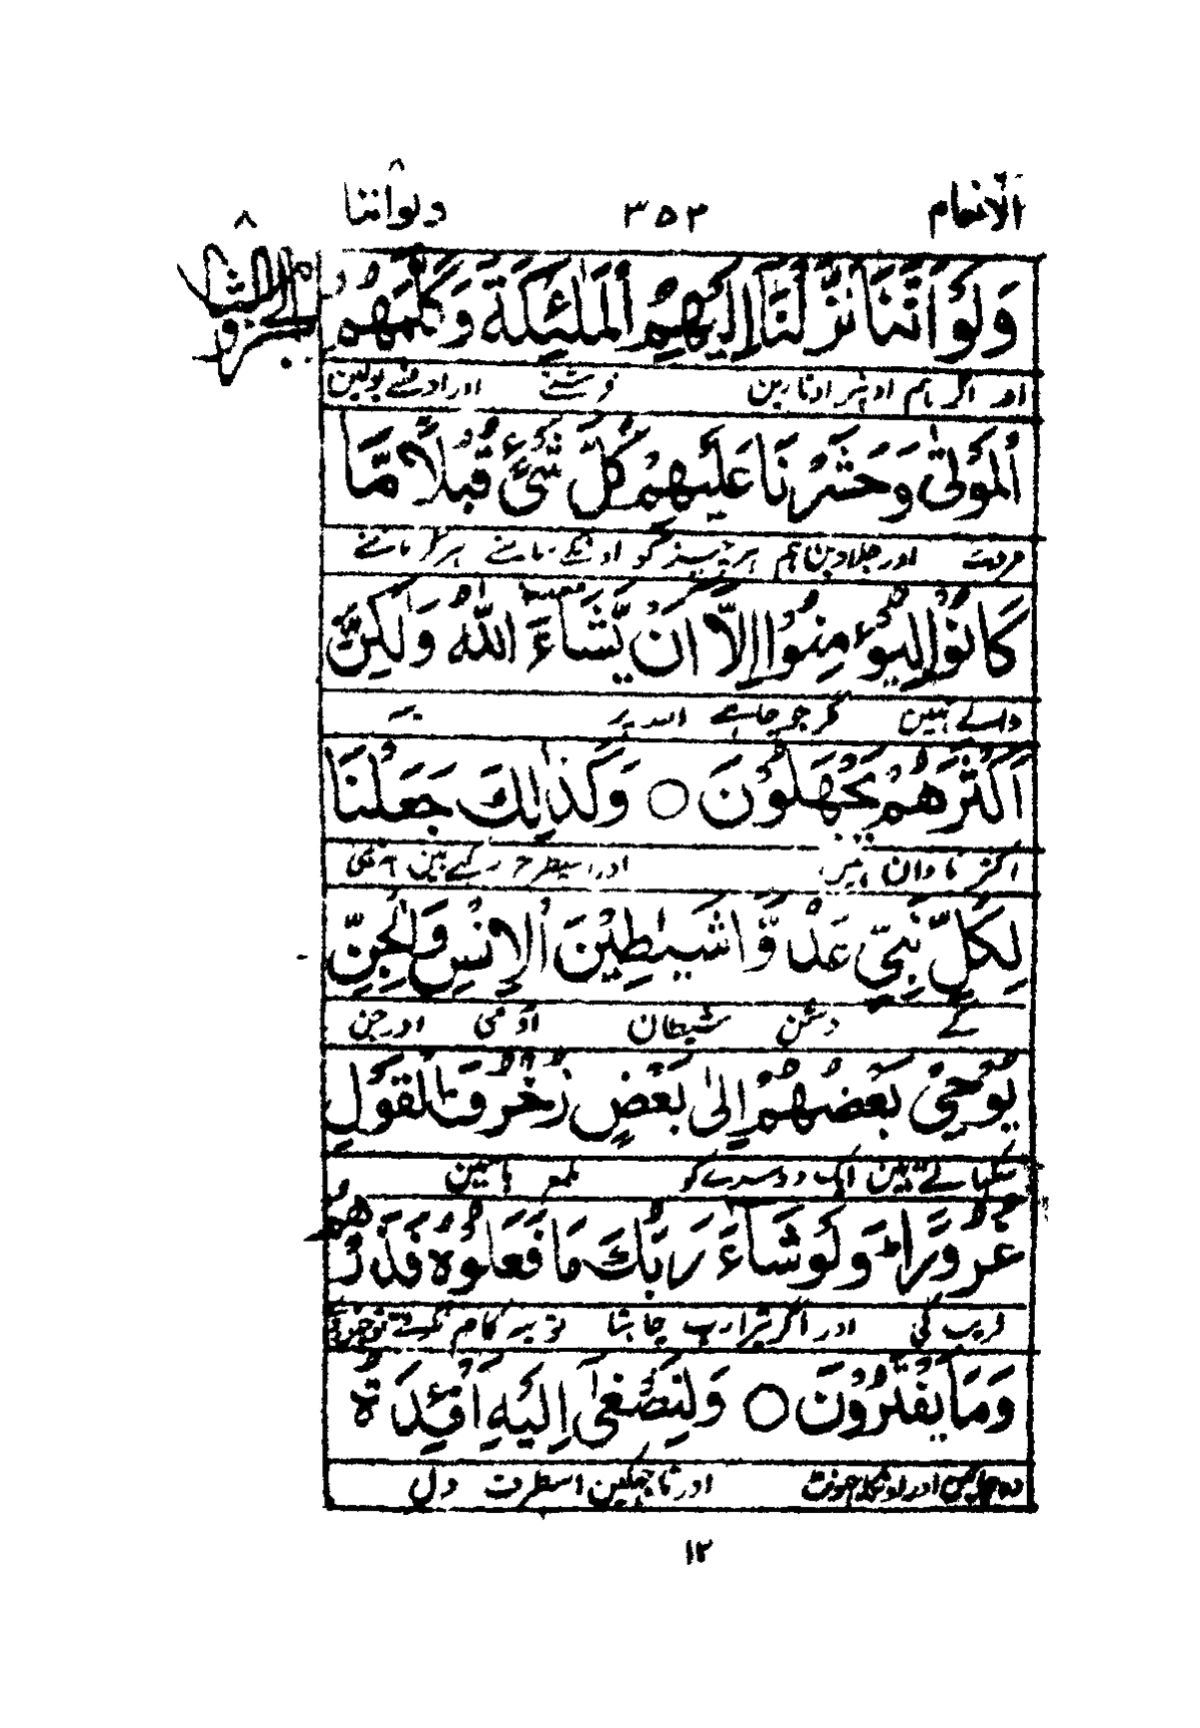 الانعام ۳۵۲ ولواننا
۸
الجزو الثامن
۸
وَلَوْ اَنَّنَا نَزَّلْنَا اِلَيْهِمُ الْمَلٰٓئِكَةَ وَكَلَّمَهُمُ
اور اگر ہم اونپر اوتارین فرشتے اور اونسے بولین
الْمَوْتٰى وَحَشَرْنَا عَلَيْهِمْ كُلَّ شَيْءٍ قُبُلًا مَّا
مردے اور جلادین ہم ہر چیز کو اونکے سامنے ہرگز ماننے
كَانُوْا لِيُؤْمِنُوْٓا اِلَّآ اَنْ يَّشَآءَ اللّٰهُ وَلٰكِنَّ
والے نہین مگر جو چاہے اللہ پر یہ
اَكْثَرَهُمْ يَجْهَلُوْنَ ○ وَكَذٰلِكَ جَعَلْنَا
اکثر نادان ہین اور اسیطرح رکھے ہین ہمنے
لِكُلِّ نَبِيٍّ عَدُوًّا شَيٰطِيْنَ الْاِنْسِ وَالْجِنِّ
کے دشمن شیطان آدمی اور جن
يُوْحِيْ بَعْضُهُمْ اِلٰى بَعْضٍ زُخْرُفَ الْقَوْلِ
سکھاتے ہین ایک دوسرے کو ملمع باتین
غُرُوْرًا ط وَلَوْ شَآءَ رَبُّكَ مَا فَعَلُوْهُ فَذَرْهُمْ
فریب کی اور اگر تیرا رب چاہتا تو یہ کام نکرتے سو چھوڑدے
وَمَا يَفْتَرُوْنَ ○ وَلِتَصْغٰٓى اِلَيْهِ اَفْـِٕدَةُ
وہ جانین اور اونکا جھوٹ اور تا جھکین اسطرف دل
۱۲